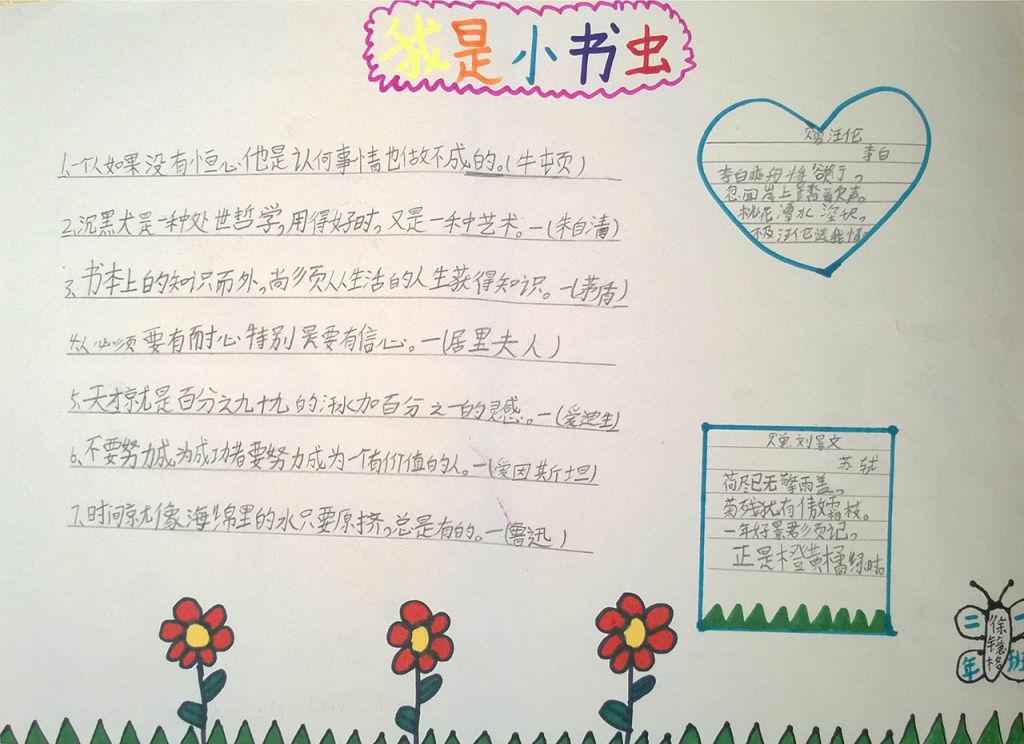 我是小书虫
1.一个人如果没有恒心他是认何事情也做不成的。(牛顿)
2.沉黑犬是一种处世哲学,用得好时,又是一种艺术。—(朱自清)
3.书本上的知识而外,尚须从生活的人生获得知识。—(茅盾)
4.人必须要有耐心特别是要有信心。—(居里夫人)
5.天才就是百分之九十九的汗水加百分之一的灵感。—(爱迪生)
6.不要努力成为成功者要努力成为一个有价值的人。—(爱因斯坦)
7.时间就像海绵里的水只要原挤,总是有的。—(鲁迅)
赠汪伦
李白
李白乘舟将欲行。
忽回岸上踏歌声。
桃花潭水深尺。
不及汪伦送我情
赠刘景文
苏轼
荷尽已无擎雨盖。
菊残犹有傲霜枝。
一年好景君须记。
正是橙黄橘绿时。
二年一班
徐